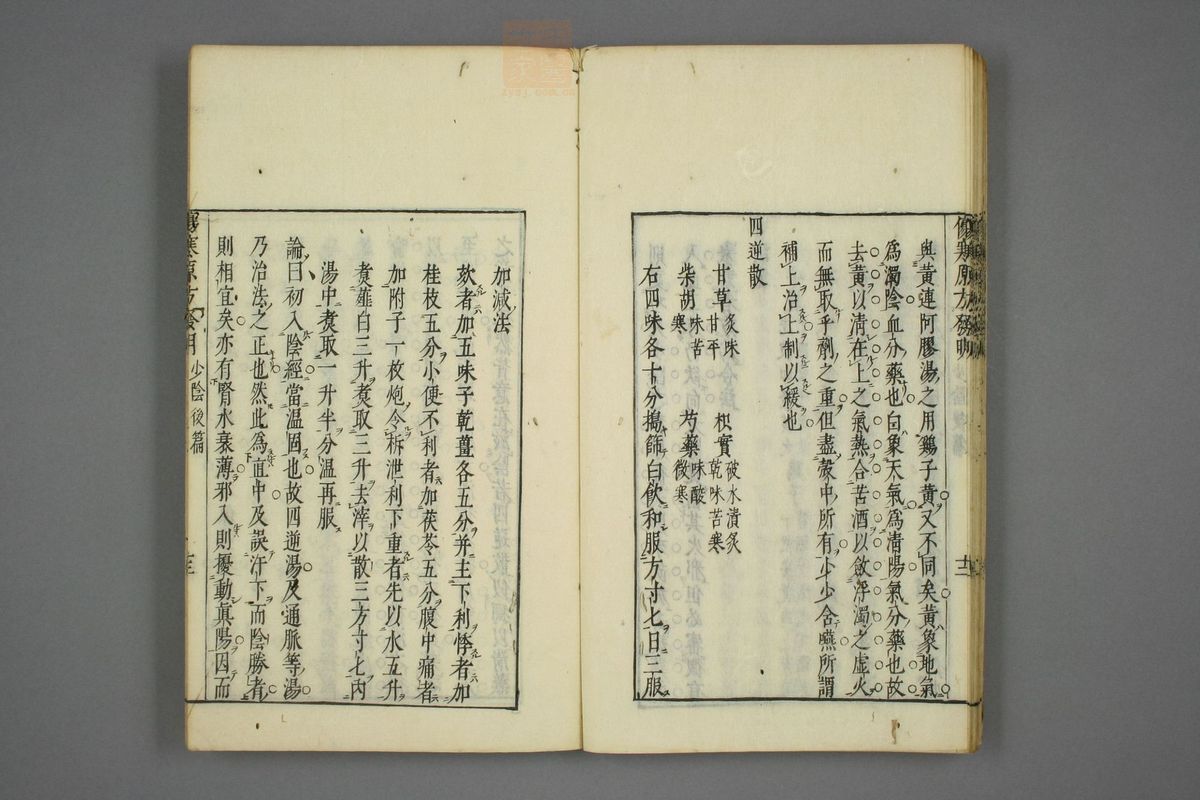 與黃連阿膠湯之用鷄子黃又不同矣黃象地氣
爲濁陰血分藥也白象天氣爲清陽氣分藥也故
去黃以清在上之氣熱合苦酒以斂浮濁之虛火
而無取乎劑之重但盡殼中所有少少含嚥所謂
補上治上制以緩也
四逆散
甘草 炙味甘平 枳實 破水漬炙乾味苦寒
柴胡 味苦寒 芍藥 味酸微寒
右四味各十分搗篩白飲和服方寸匕日三服
十二
加減法
欬者加五味子乾薑各五分并主下利悸者加
桂枝五分小便不利者加茯苓五分腹中痛者
加附子一枚炮令柝泄利下重者先以水五升
煑薤白三升煑取三升去滓以散三方寸匕內
湯中煑取一升半分溫再服
論曰初入陰經當溫固也故四逆湯及通脈等湯
乃治法之正也然此爲直中及誤汗下而陰勝者
則相宜矣亦有腎水衰薄邪入則擾動眞陽因而
少陰後篇
zysj.com.cn